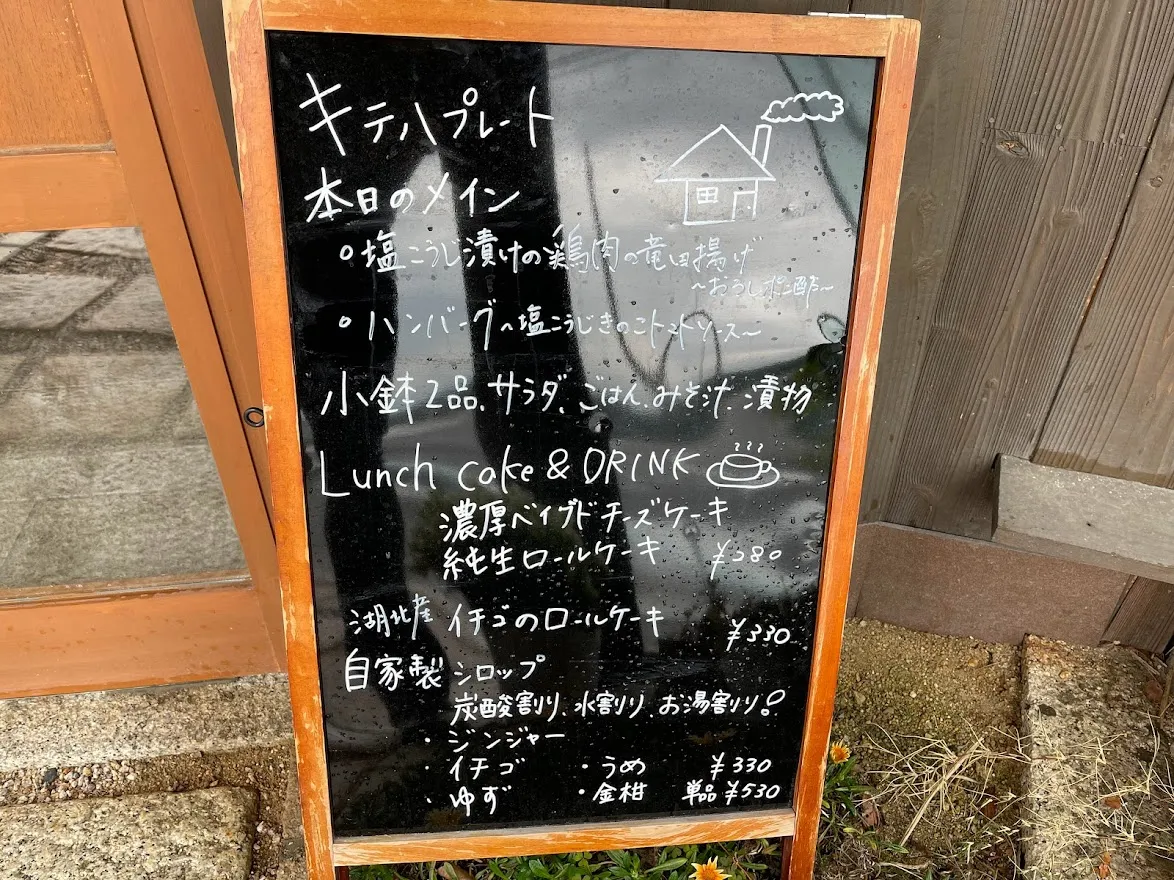 キテハプレート
本日のメイン
○塩こうじ漬けの鶏肉の竜田揚げ
~おろしポン酢~
○ハンバーグ~塩こうじきのこトマトソース~
小鉢2品、サラダ、ごはん、みそ汁、漬物
Lunch cake & DRINK
濃厚ベイクドチーズケーキ
純生ロールケーキ ¥280
湖北産 イチゴのロールケーキ
¥330
自家製 シロップ
炭酸割り、水割り、お湯割り!
・ジンジャー
・イチゴ ・うめ ¥330
・ゆず ・金柑 単品¥530